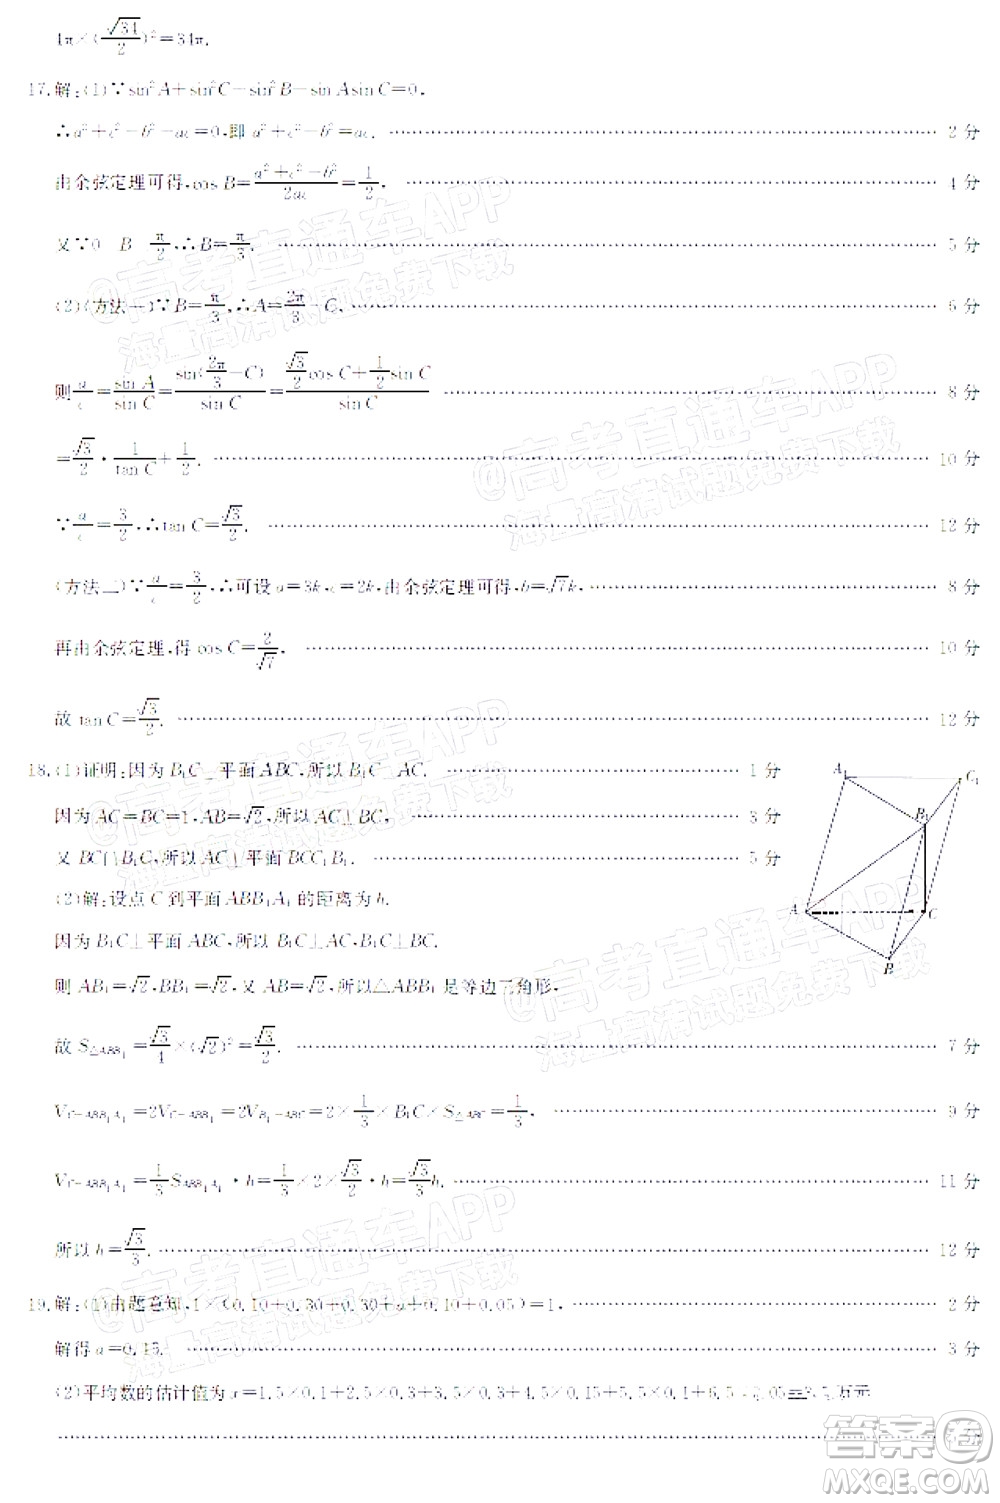 4π×(√34/2)²=34π.
17.解:(1)∵sin²A+sin²C−sin²B−sinAsinC=0,
∴a²+c²−b²−ac=0,即 a²+c²−b²=ac. 2 分
由余弦定理可得,cos B=(a²+c²−b²)/2ac=1/2, 4 分
又∵0 B π/2,∴B=π/3. 5 分
(2)(方法一)∵B=π/3,∴A=2π/3−C, 6 分
则 a/c=sin A/sin C=sin(2π/3−C)/sin C=(√3/2 cos C+1/2 sin C)/sin C 8 分
=√3/2·1/tan C+1/2. 10 分
∵a/c=3/2,∴tan C=√3/2. 12 分
(方法二)∵a/c=3/2,∴可设 a=3k,c=2k,由余弦定理可得,b=√7k, 8 分
再由余弦定理,得 cos C=2/√7, 10 分
故 tan C=√3/2. 12 分
18.(1)证明:因为 B₁C⊥平面 ABC,所以 B₁C⊥AC. 1 分
因为 AC=BC=1,AB=√2,所以 AC⊥BC, 3 分
又 BC∩B₁C,所以 AC⊥平面 BCC₁B₁. 5 分
(2)解:设点 C 到平面 ABB₁A₁ 的距离为 h.
因为 B₁C⊥平面 ABC,所以 B₁C⊥AC,B₁C⊥BC.
则 AB₁=√2,BB₁=√2,又 AB=√2,所以△ABB₁ 是等边三角形,
故 S△ABB₁=√3/4×(√2)²=√3/2. 7 分
V_C−ABB₁A₁=2V_C−ABB₁=2V_B₁−ABC=2×1/3×B₁C×S△ABC=1/3, 9 分
V_C−ABB₁A₁=1/3 S_ABB₁A₁·h=1/3×2×√3/2·h=√3/3 h. 11 分
所以 h=√3/3. 12 分
A₁ C₁
B₁
A C
B
19.解:(1)由题意知,1×(0.10+0.30+0.30+a+0.10+0.05)=1, 2 分
解得 a=0.15. 3 分
(2)平均数的估计值为 x=1.5×0.1+2.5×0.3+3.5×0.3+4.5×0.15+5.5×0.1+6.5 0.05=3.5万元
@高考直通车APP
海量高清试题免费下载
@高考直通车APP
海量高清试题免费下载
@高考直通车APP
海量高清试题免费下载
@高考直通车APP
海量高清试题免费下载
@高考直通车APP
海量高清试题免费下载
答案圈
MXQE.COM